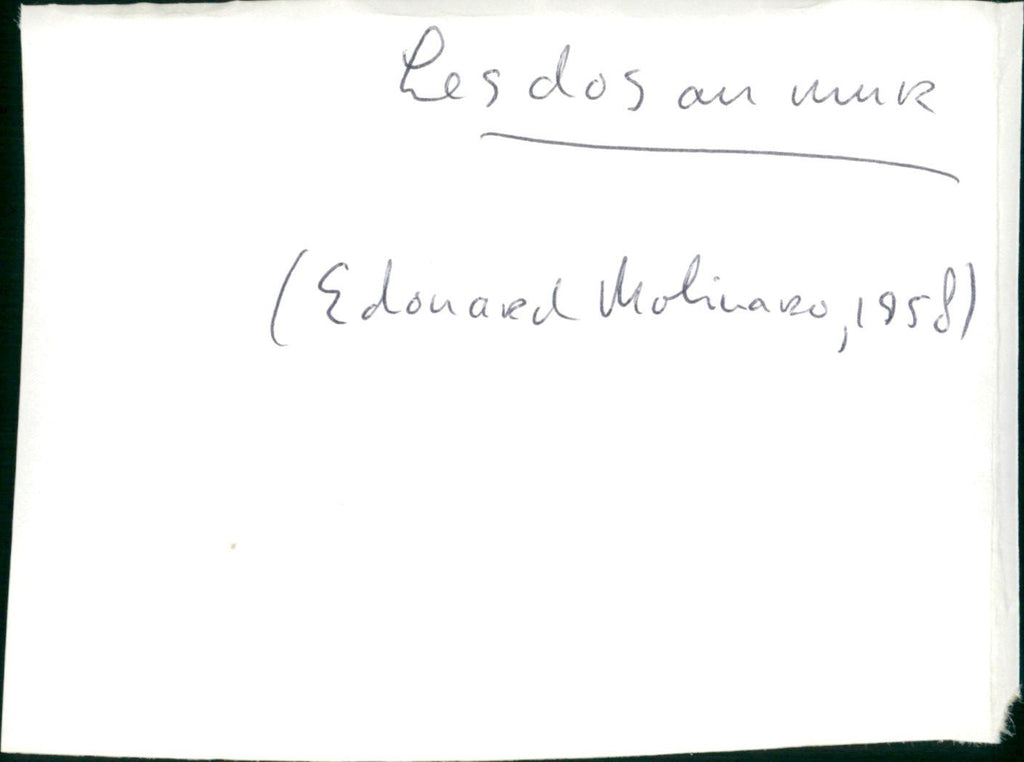 Les dos au mur
(Edouard Molinaro, 1958)